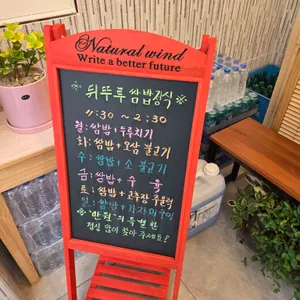 Natural wind
Write a better future
뒤뚜루 쌈밥정식
11:30 ~ 2:30
월: 쌈밥 + 두루치기
화: 쌈밥 + 오삼 불고기
수: 쌈밥 + 소 불고기
금: 쌈밥 + 수육
토: 쌈밥 + 고추장 주물럭
일: 쌈밥 +
"만원"의
점심 많이 찾아 주세요!